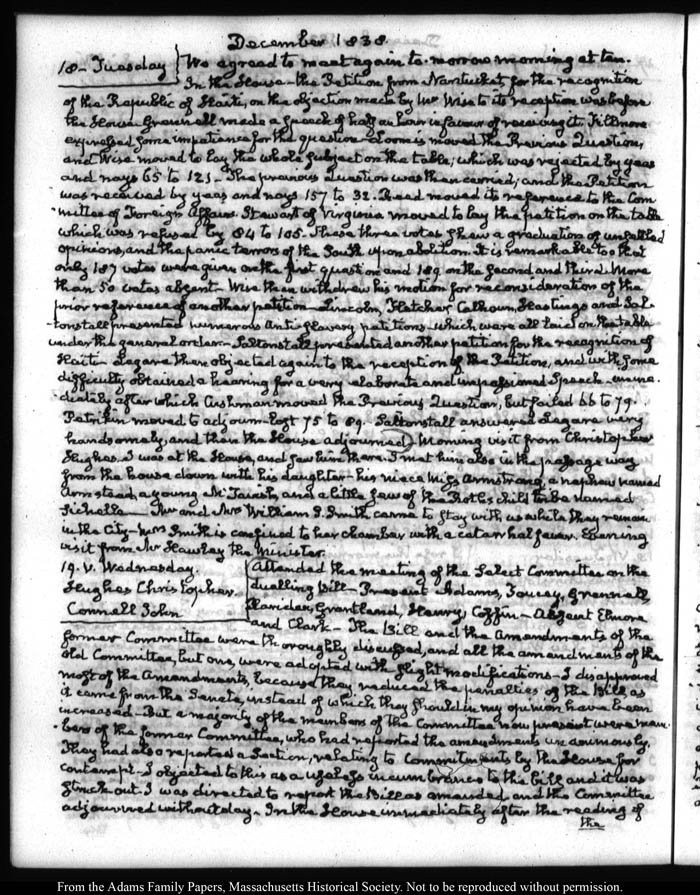 December 1838.
18. Tuesday } We agreed to meet again to-morrow morning at ten.
In the House—the Petition from Nantucket, for the recognition
of the Republic of Haiti, on the objection made by Mr Wise to its reception was before
the House. Grennell made a speech of half an hour in favour of receiving it. Fillmore
expressed some impatience for the question—Loomis moved the Previous Question,
and Wise moved to lay the whole subject on the table; which was rejected by yeas
and nays 65 to 123—The previous Question was then carried; and the Petition
was received by yeas and nays 157 to 32. moved its reference to the Com-
mittee of Foreign Affairs. Stewart of Virginia moved to lay the petition on the table
which was refused by 84 to 105. These three votes shew a graduation of unsettled
opinions, and the panic terrors of the South upon abolition. It is remarkable too that
only 187 votes were given on the first question and 189 on the second and third. More
than 50 votes absent—Wise then withdrew his motion for reconsideration of the
prior reference of another petition—Lincoln, Fletcher, Calhoun, Hastings and Sal-
tonstall presented numerous Anti-Slavery petitions which were all laid on the table
under the general order—Saltonstall presented another petition for the recognition of
Haiti—Legare then objected again to the reception of the Petition, and with some
difficulty obtained a hearing for a very elaborate and impassioned Speech—imme-
diately after which Cushman moved the Previous Question, but failed 66 to 79.
Petrikin moved to adjourn—lost 75 to 89. Saltonstall answered Legare very
handsomely, and then the House adjourned) Morning visit from Christopher
Hughes. I was at the House, and saw him there. I met him also in the passage way
from the house down with his daughter—his niece Miss Armstrong, a nephew named
Armstead, a young Mr and a little Jew of the Rothschild tribe named
Mr and Mrs William S. Smith came to stay with us while they remain
in the City—Mrs Smith is confined to her chamber with a catarrhal fever. Evening
visit from Mr Hawley the Minister.
19. V. Wednesday.
Hughes Christopher.
Connell John
Attended the meeting of the Select Committee on the
duelling Bill—Present Adams, Toucey, Grennell,
Grantland, Henry, Coffin—Absent Elmore
and Clark—The Bill and the Amendments of the
former Committee were thoroughly discussed, and all the amendments of the
old Committee, but one, were adopted with slight modifications—I disapproved
most of the Amendments, because they reduced the penalties of the Bill as
it came from the Senate, instead of which they should in my opinion have been
increased—But a majority of the members of the Committee now present were mem-
bers of the former Committee, who had reported the amendments unanimously.
They had also reported a Section, relating to commitments by the House for
contempt—I objected to this as a useless incumbrance to the bill and it was
struck out. I was directed to report the Bill as amended, and the Committee
adjourned without day. In the House immediately after the reading of
the
From the Adams Family Papers, Massachusetts Historical Society. Not to be reproduced without permission.